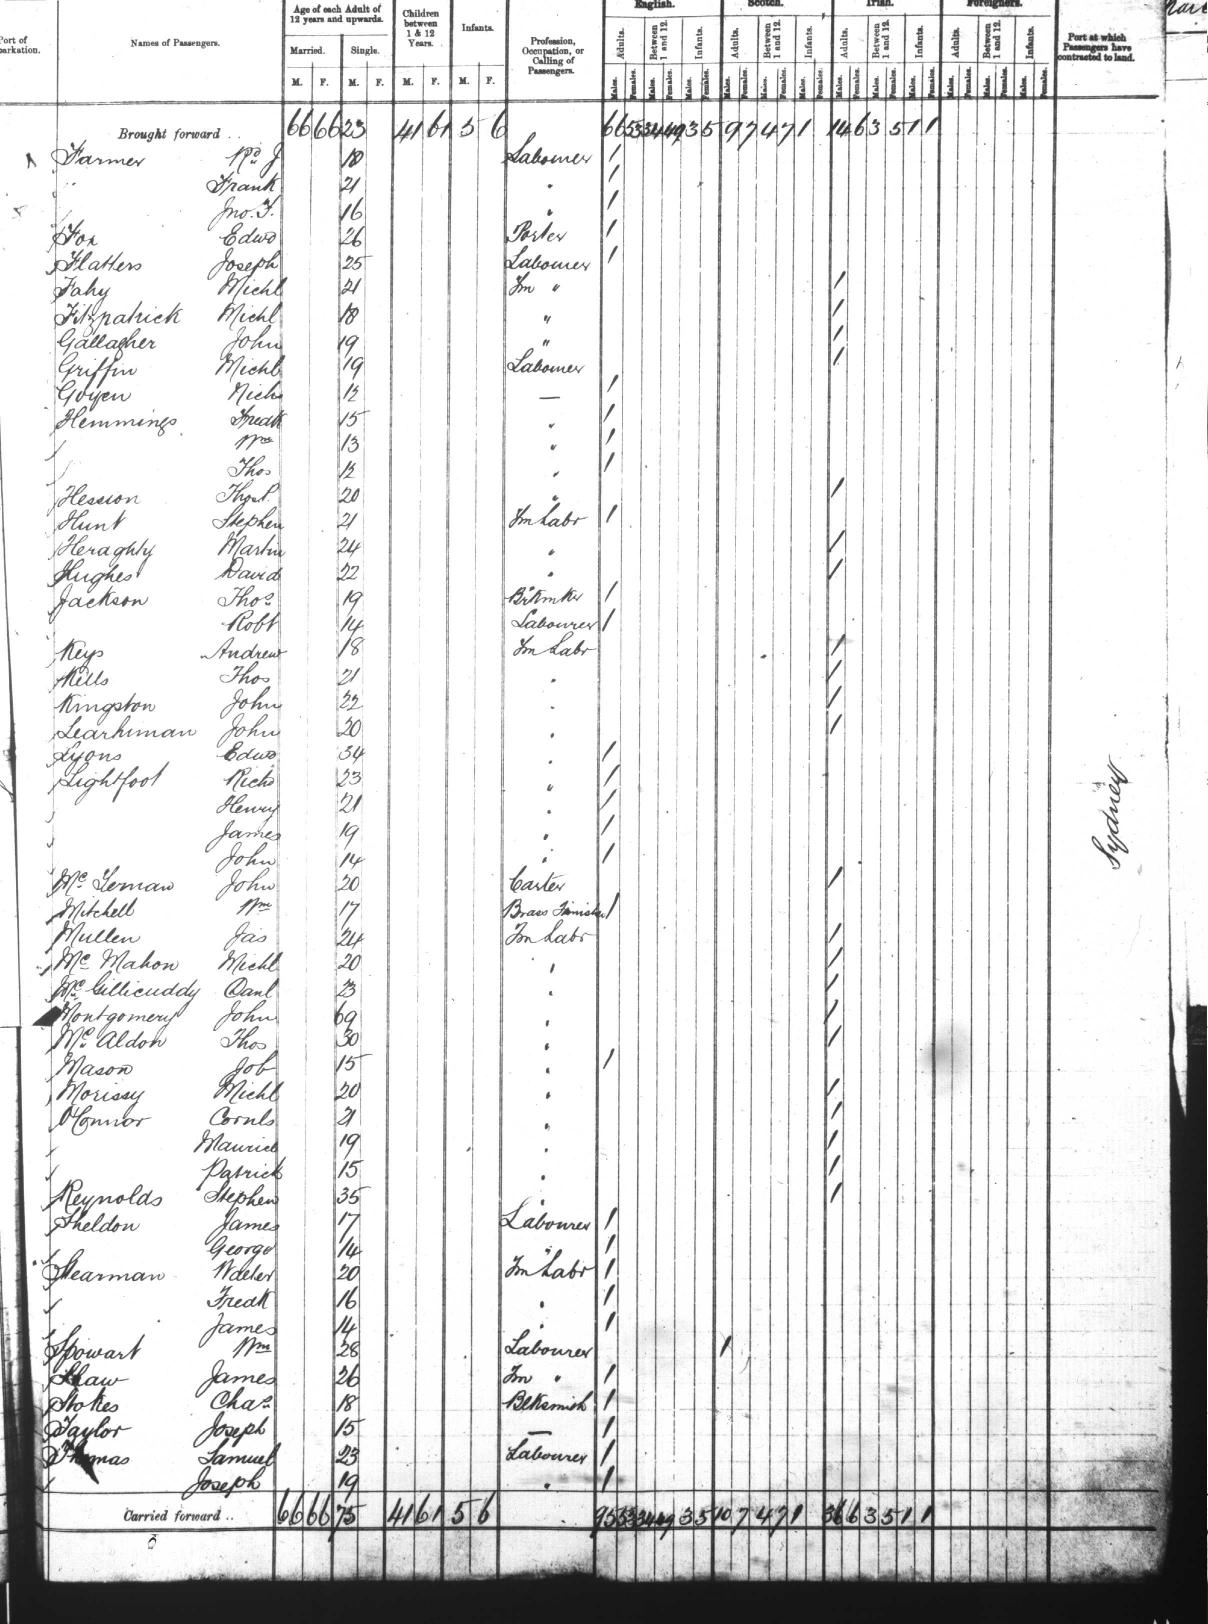 Port of
Embarkation.
Names of Passengers.
Age of each Adult of 12 years and upwards.
Married. Single.
M. F. M. F.
Children between 1 & 12 Years.
M. F.
Infants.
M. F.
Profession, Occupation, or Calling of Passengers.
English. Scotch. Irish. Foreigners.
Adults. Between 1 and 12. Infants. Adults. Between 1 and 12. Infants. Adults. Between 1 and 12. Infants. Adults. Between 1 and 12. Infants.
Males. Females. Males. Females. Males. Females. Males. Females. Males. Females. Males. Females. Males. Females. Males. Females. Males. Females. Males. Females. Males. Females. Males. Females.
Port at which Passengers have contracted to land.
Brought forward .. 66 66 23 41 61 5 6 66 53 34 49 3 5 9 7 4 7 1 14 6 3 5 1 1
Farmer Rd J 18 Labourer 1
" Frank 21 " 1
Jno. F. 16 " 1
Fox Edwd 26 Porter 1
Flatters Joseph 25 Labourer 1
Fahy Michl 21 Fm " 1
Fitzpatrick Michl 18 " 1
Gallagher John 19 " 1
Griffin Michl 19 Labourer 1
Goyen Nichs 12 — 1
Hemmings Fredk 15 " 1
Wm 13 " 1
Thos 12 " 1
Hession Thos P. 20 " 1
Hunt Stephen 21 Fm Labr 1
Heraghty Martin 24 " 1
Hughes David 22 " 1
Jackson Thos 19 Brkmkr 1
Robt 14 Labourer 1
Keys Andrew 18 Fm Labr 1
Kells Thos 21 " 1
Kingston John 22 " 1
Learhiman John 20 " 1
Lyons Edwd 34 " 1
Lightfoot Richd 23 " 1
Henry 21 " 1
James 19 " 1
John 14 " 1
Mc Lernan John 20 Carter 1
Mitchell Wm 17 Brass Finisher 1
Mullen Jas 24 Fm Labr 1
Mc Mahon Michl 20 " 1
Mc Gillicuddy Danl 23 " 1
Montgomery John 69 " 1
Mc Aldon Thos 30 " 1
Mason Job 15 " 1
Morissy Michl 20 " 1
O'Connor Cornls 21 " 1
Maurice 19 " 1
Patrick 15 " 1
Reynolds Stephen 35 " 1
Sheldon James 17 Labourer 1
George 14 " 1
Shearman Walter 20 Fm Labr 1
Fredk 16 " 1
James 14 " 1
Spowart Wm 28 Labourer 1
Shaw James 26 Fm " 1
Stokes Chas 18 Blksmith 1
Taylor Joseph 15 — 1
Thomas Samuel 23 Labourer 1
Joseph 19 " 1
Sydney
Carried forward .. 66 66 75 41 61 5 6 95 53 34 49 3 5 10 7 4 7 1 36 6 3 5 1 1